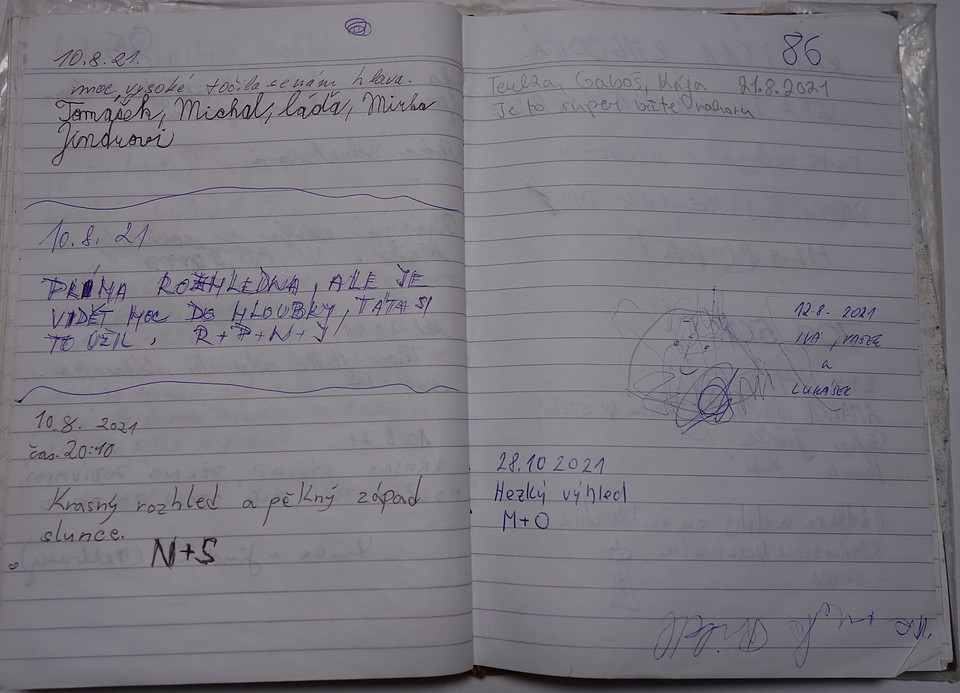 10.8.21.
moc vysoké točila se nám hlava.
Tomášek, Michal, Laďa, Mirka
Jindrovi
10.8. 21
PRIMA ROZHLEDNA, ALE JE
VIDĚT MOC DO HLOUBKY, TÁTA SI
TO UŽIL. R+P+N+J
10.8. 2021
čas. 20:10
Krasný rozhled a pěkný západ
slunce.
N+S
86
Terulza, Gaboš, Kája 21.8.2021
Je to super búte nahoru
12.8. 2021
IVA, VAŠEK
a
LUKÁŠEK
28.10 2021
Hezký výhled
M+O